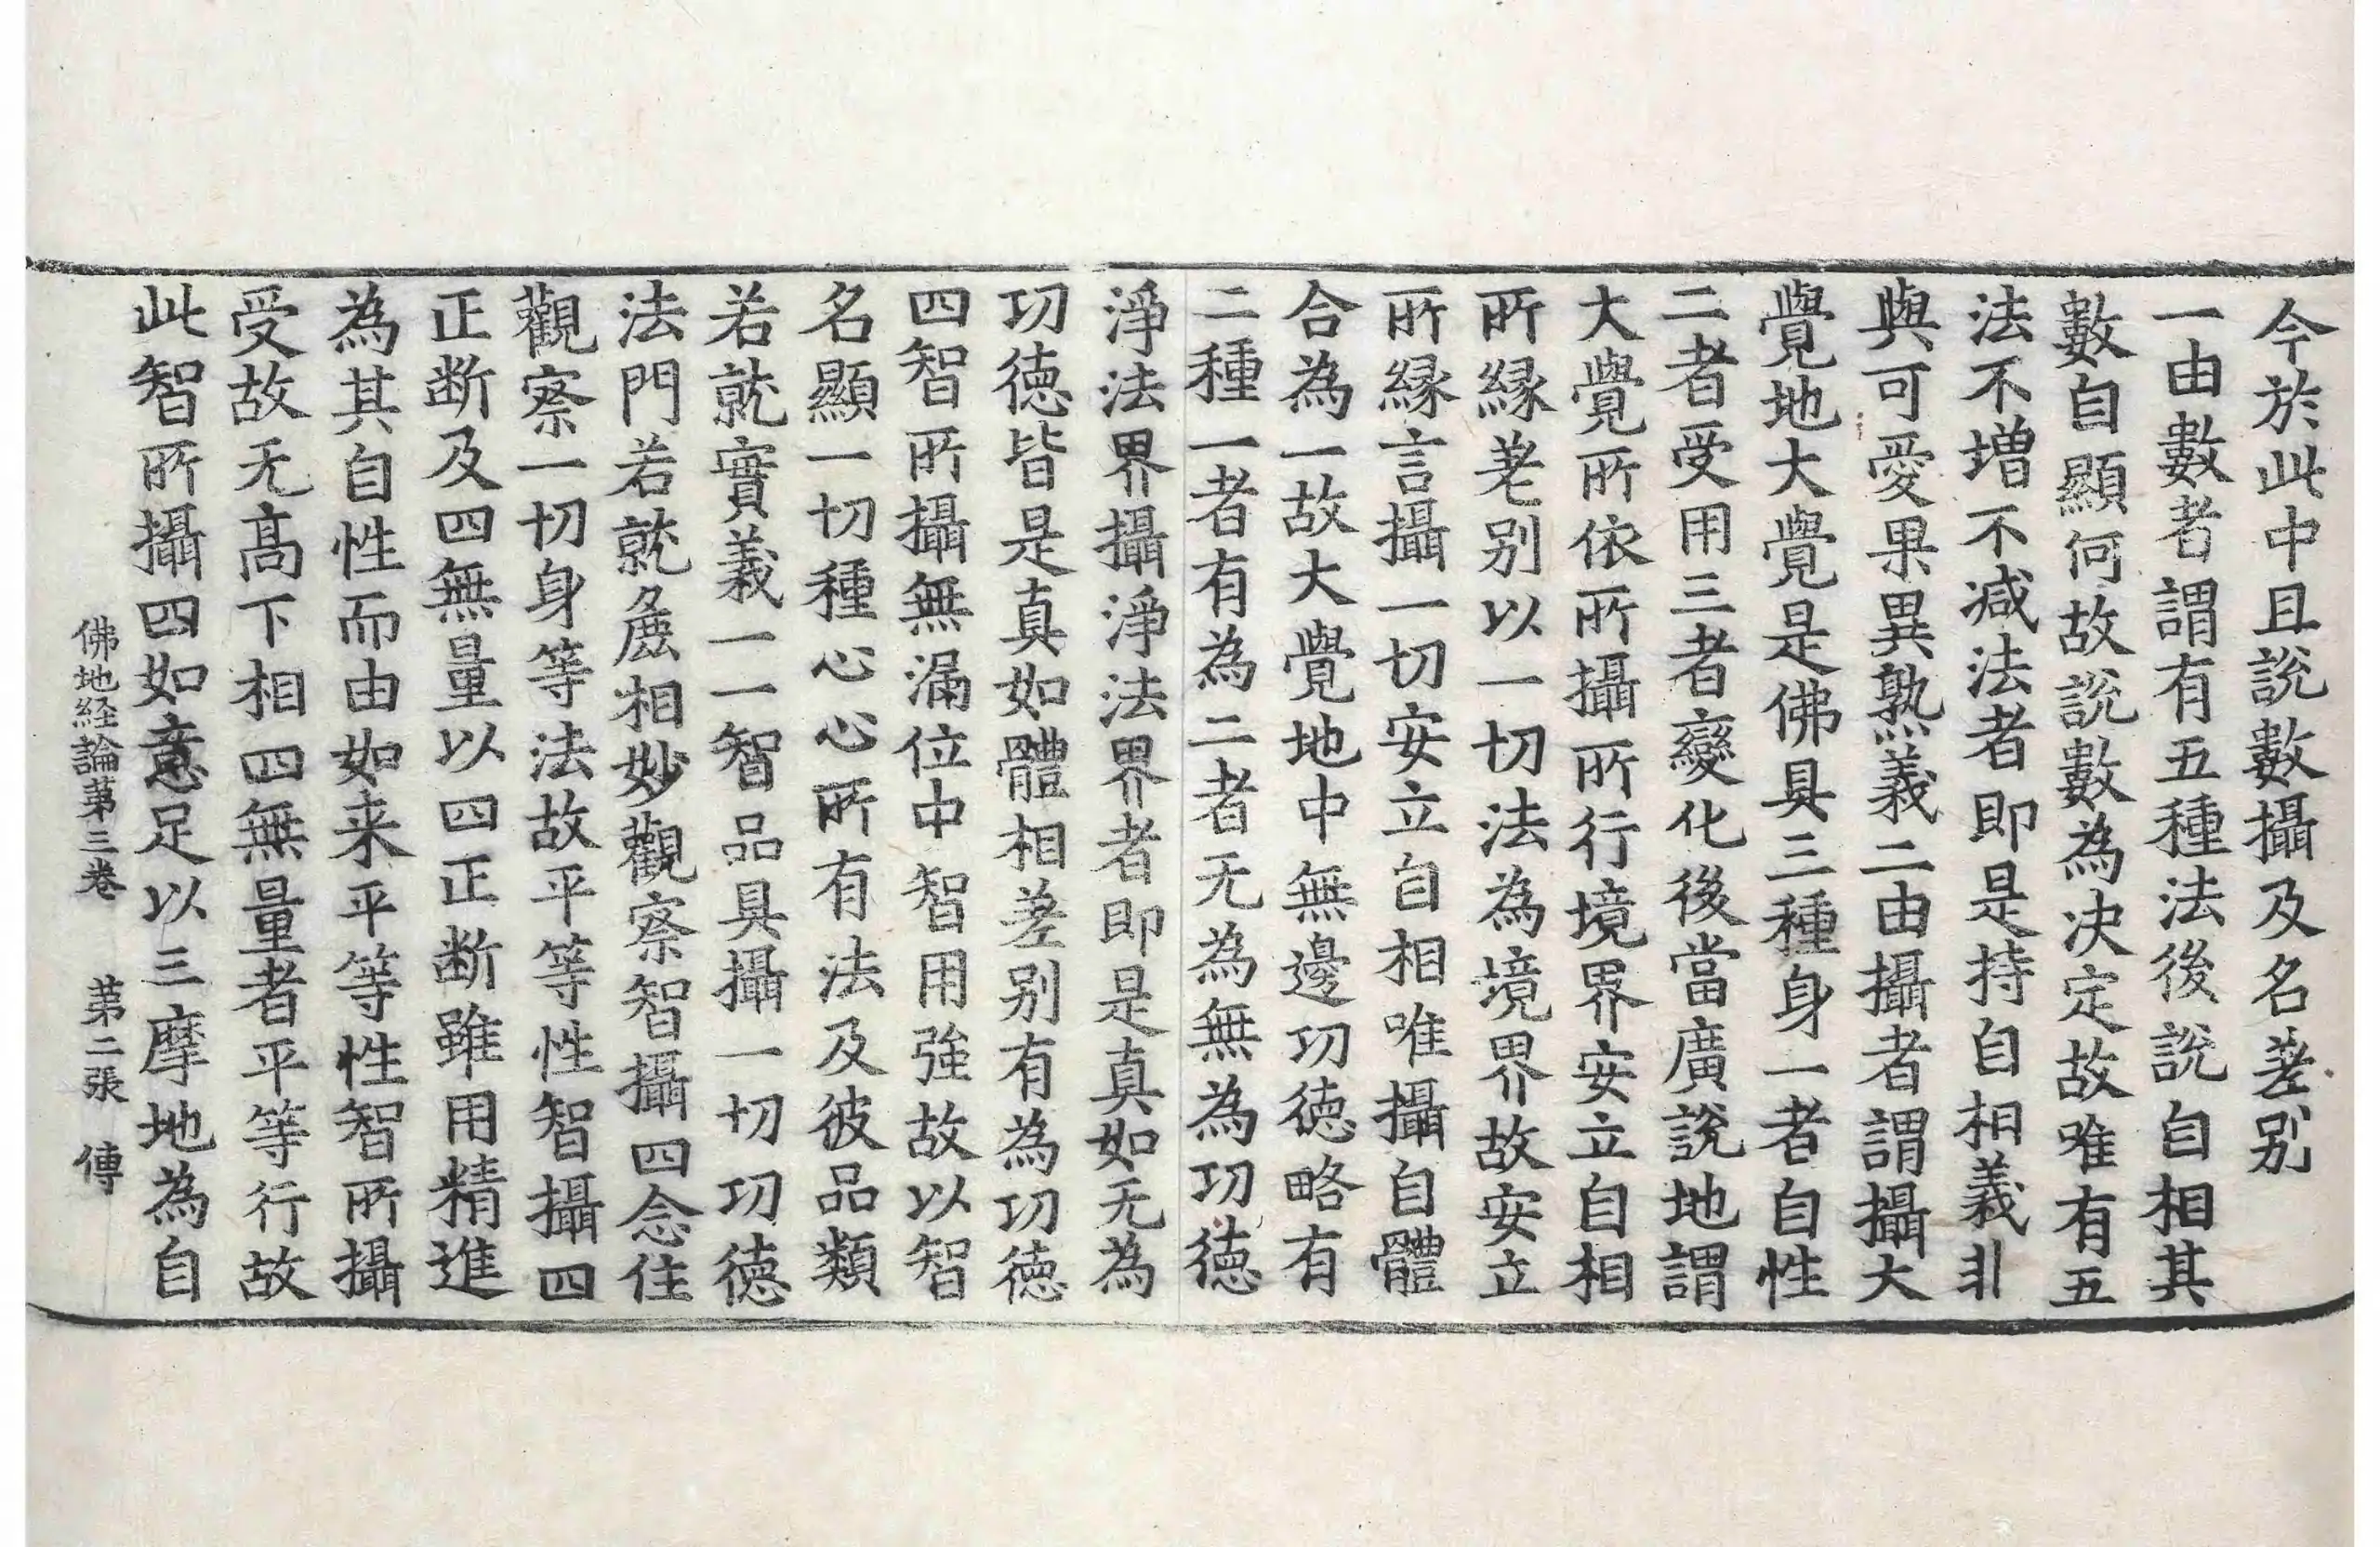 今於此中且說數攝及名差别
一由數者謂有五種法後說自相其
數自顯何故說數為决定故唯有五
法不增不减法者即是持自相義非
與可愛果異熟義二由攝者謂攝大
覺地大覺是佛具三種身一者自性
二者受用三者變化後當廣說地謂
大覺所依所攝所行境界安立自相
所縁差别以一切法為境界故安立
所縁言攝一切安立自相唯攝自體
合為一故大覺地中無邊功徳略有
二種一者有為二者无為無為功徳
淨法界攝淨法界者即是真如无為
功徳皆是真如體相差别有為功徳
四智所攝無漏位中智用強故以智
名顯一切種心心所有法及彼品類
若就實義一一智品具攝一切功徳
法門若就麁相妙觀察智攝四念住
觀察一切身等法故平等性智攝四
正断及四無量以四正断雖用精進
為其自性而由如来平等性智所攝
受故无髙下相四無量者平等行故
此智所攝四如意足以三摩地為自
佛地経論苐三卷 苐二張 傳